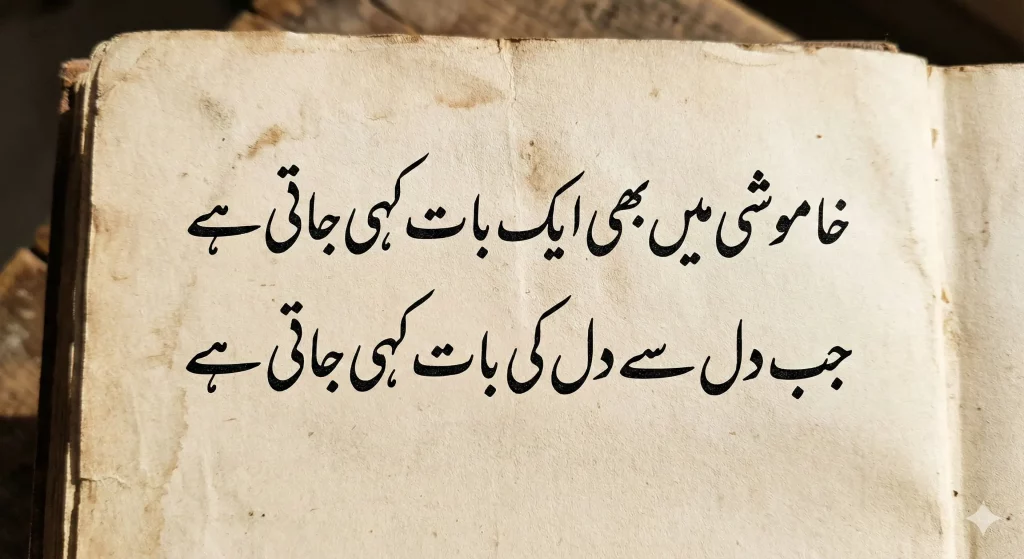 خاموشی میں بھی ایک بات کہی جاتی ہے
جب دل سے دل کی بات کہی جاتی ہے